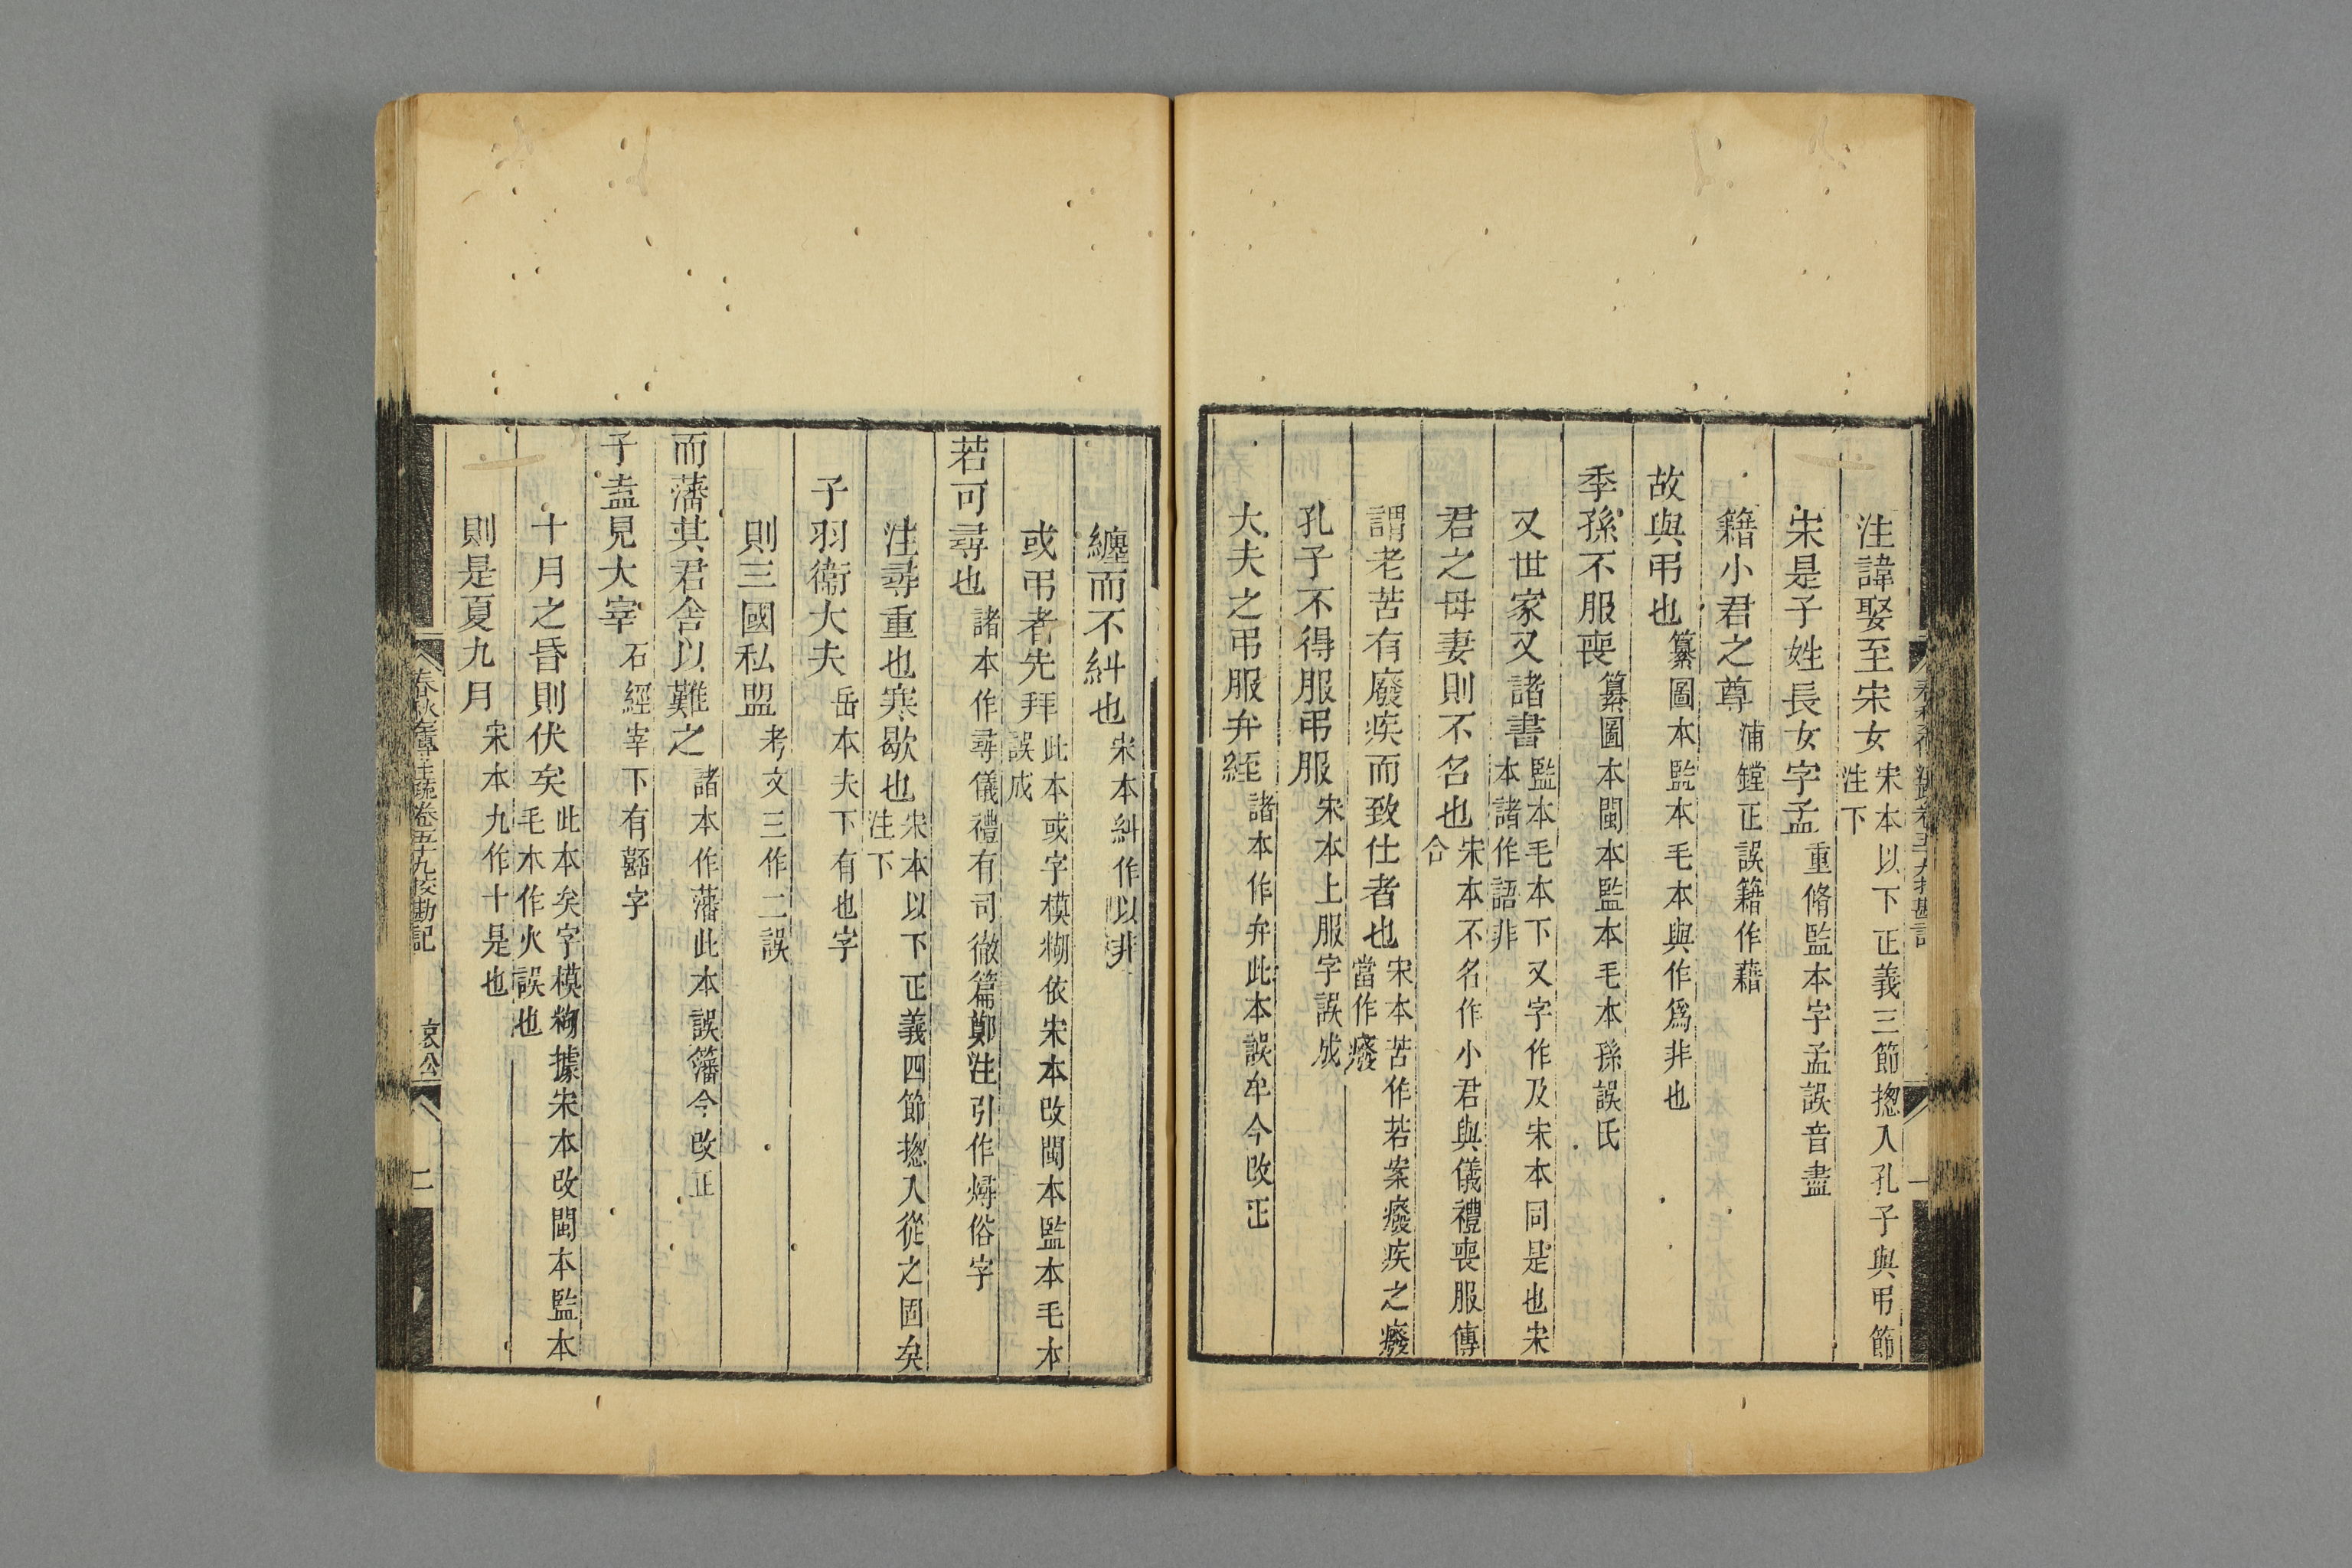 注諱娶至宋女宋本以下正義三節揔入孔子與弔節注下
宋是子姓長女字孟重脩監本字孟誤音盡
籍小君之尊浦鏜正誤籍作藉
故與弔也纂圖本監本毛本與作爲非也
季孫不服喪纂圖本閩本監本毛本孫誤氏
又世家又諸書監本毛本下又字作及宋本同是也宋本諸作語非
君之母妻則不名也宋本不名作小君與儀禮喪服傳合
謂老苦有廢疾而致仕者也宋本苦作若案癈疾之癈當作癈
孔子不得服弔服宋本上服字誤成
大夫之弔服弁絰諸本作弁此本誤牟今改正
纏而不糾也宋本糾作以非
或弔者先拜此本或字模糊依宋本改閩本監本毛本誤成
若可尋也諸本作尋儀禮有司徹篇鄭注引作燖俗字
注尋重也寒歇也宋本以下正義四節揔入從之固矣注下
子羽衞大夫岳本夫下有也字
則三國私盟考文三作二誤
而藩其君舍以難之諸本作藩此本誤籓今改正
子盍見大宰石經宰下有嚭字
十月之昏則伏矣此本矣字模糊據宋本改閩本監本毛本作火誤也
則是夏九月宋本九作十是也
春秋左傳注疏卷五十九挍勘記 哀公 二